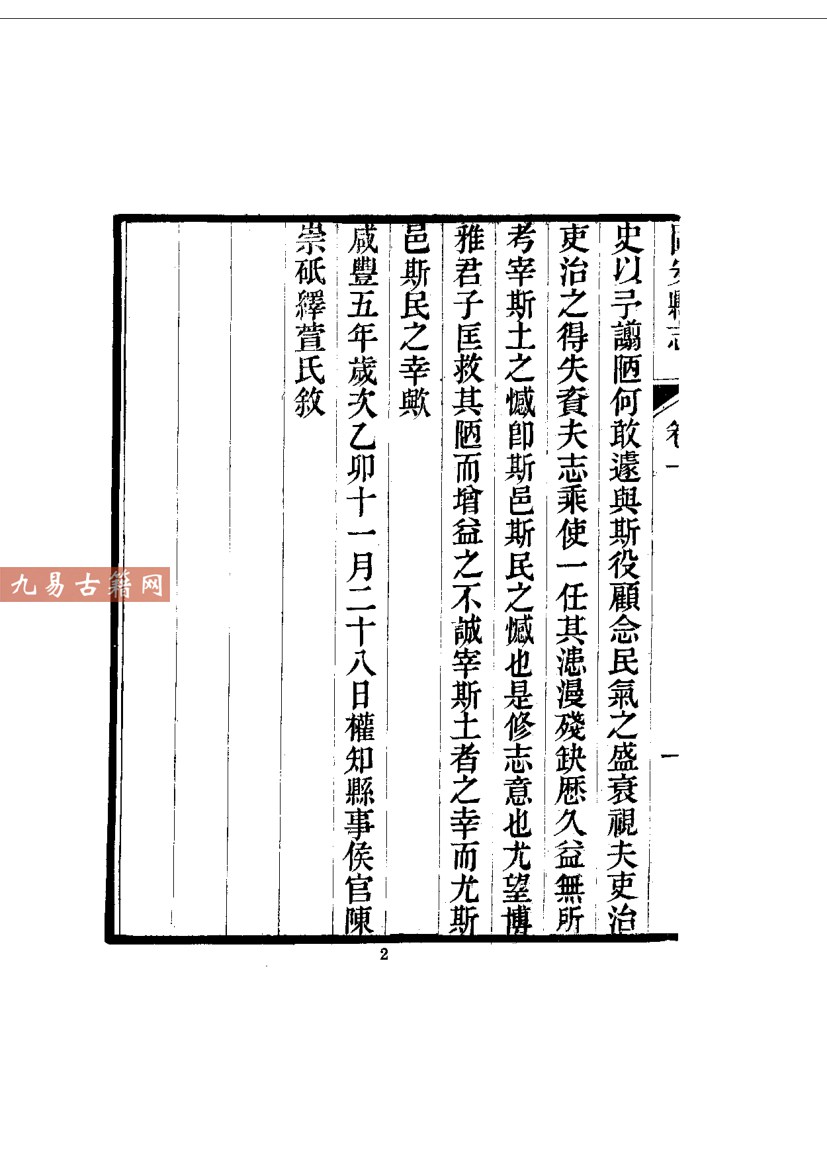 固安縣志 卷一 一
史以予謭陋何敢遽與斯役顧念民氣之盛衰視夫吏治
吏治之得失資夫志乘使一任其漶漫殘缺厯久益無所
考宰斯土之憾卽斯邑斯民之憾也是修志意也尤望博
雅君子匡救其陋而增益之不誠宰斯土者之幸而尤斯
邑斯民之幸歟
咸豐五年歲次乙卯十一月二十八日權知縣事侯官陳
崇砥繹萱氏敘
九易古籍网
2